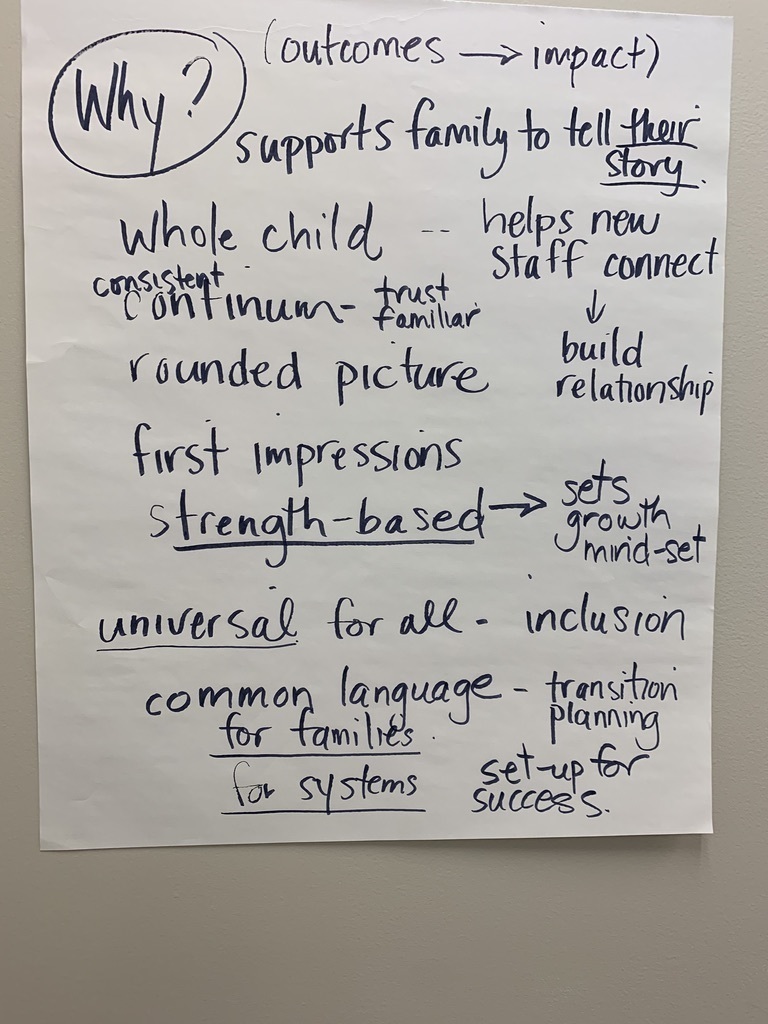 Why? (outcomes → impact)
supports family to tell their
story.
Whole child -- helps new
staff connect
↓
build
relationship
consistent
continum - trust
familiar
rounded picture
first impressions
strength-based → sets
growth
mind-set
universal for all - inclusion
common language - transition
planning
for families.
for systems
set-up for
success.